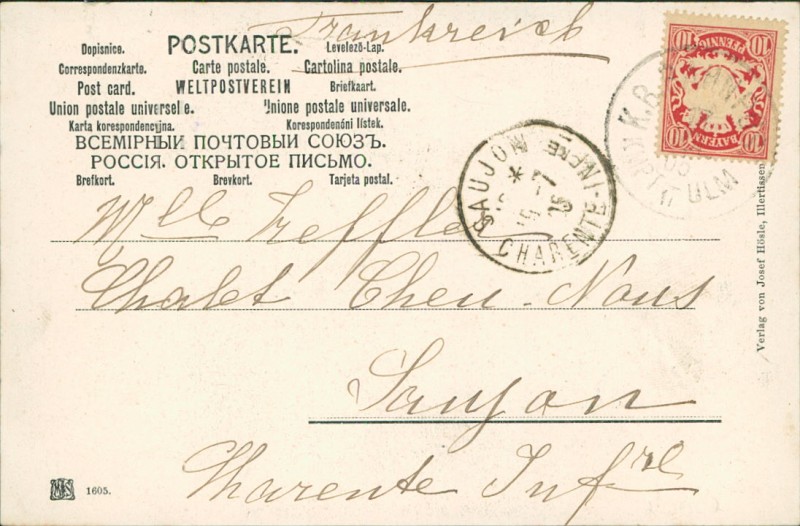 Frankreich
Dopisnice. POSTKARTE. Levelező-Lap.
Correspondenzkarte. Carte postale. Cartolina postale.
Post card. WELTPOSTVEREIN Briefkaart.
Union postale universelle. Unione postale universale.
Karta korespondencyjna. Korespondenční lístek.
ВСЕМІРНЫЙ ПОЧТОВЫЙ СОЮЗЪ.
РОССІЯ. ОТКРЫТОЕ ПИСЬМО.
Brefkort. Brevkort. Tarjeta postal.
10 PFENNIG 10
10 BAYERN 10
K.B. ULM
SAUJON * CHARENTE INFRE
Mlle Treffler
Chalet Chez-Nous
Saujon
Charente Infre
Verlag von Josef Hösle, Illertissen
1605.